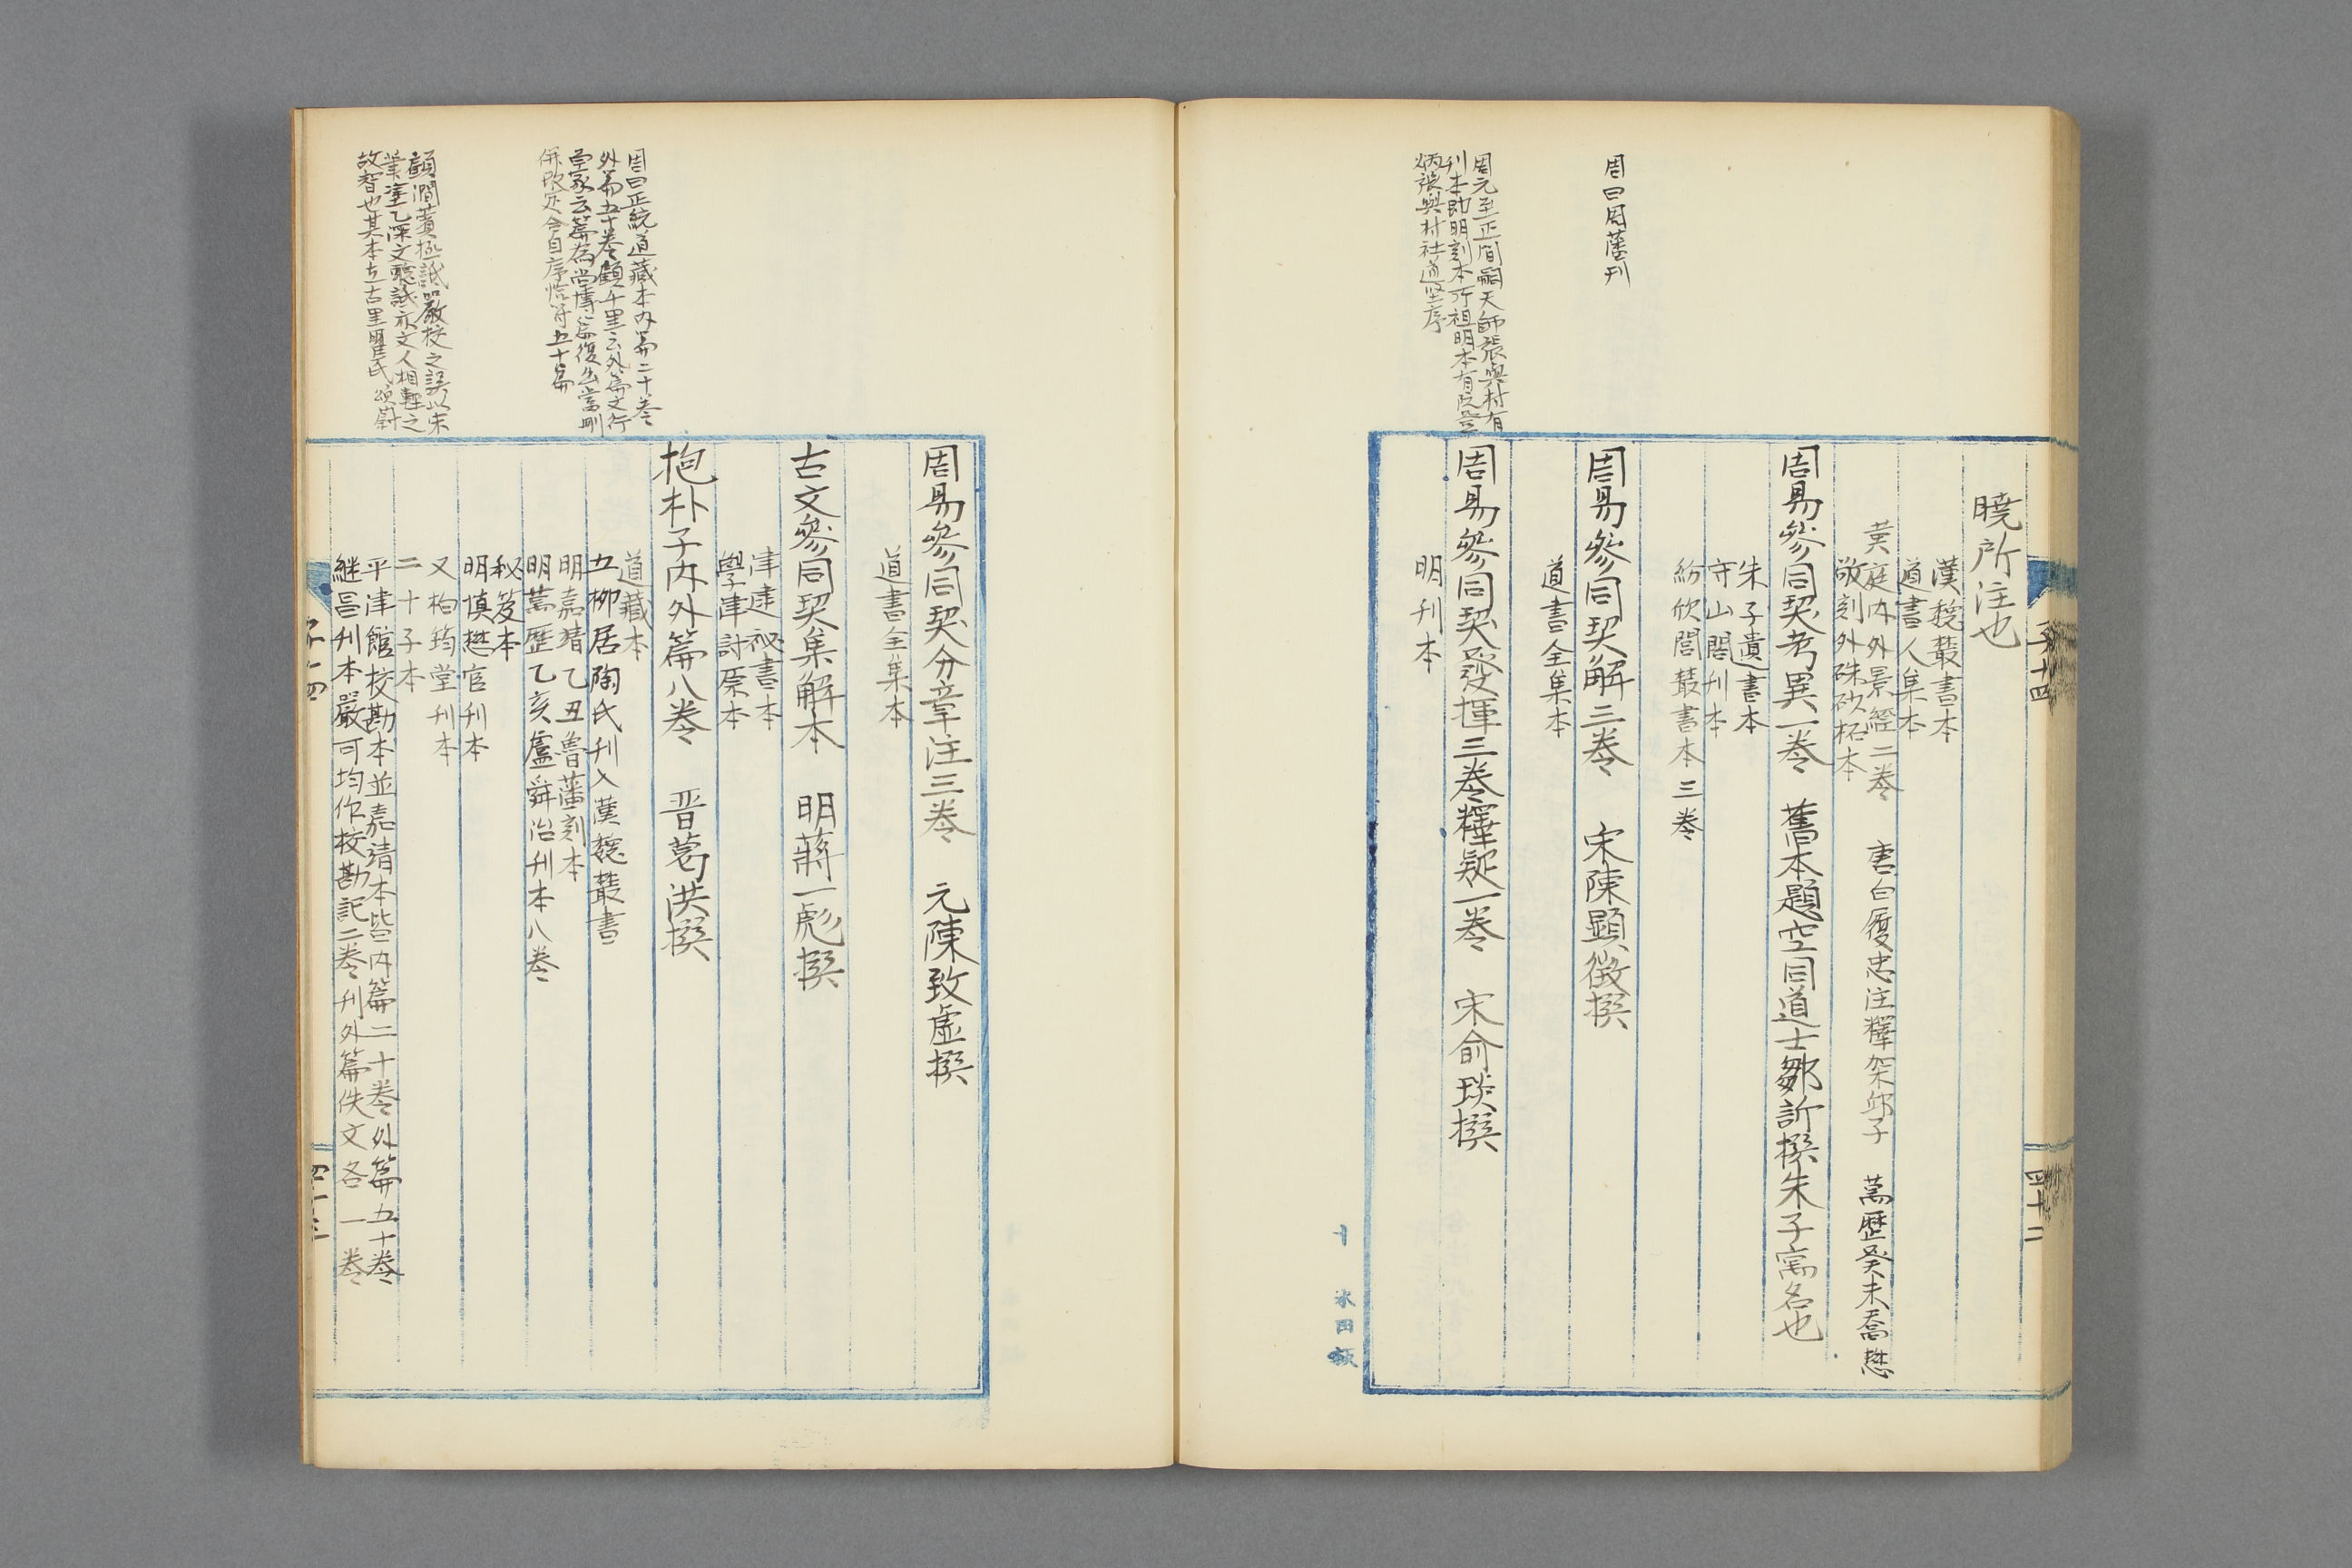 曉所注也
漢魏叢書本
道書人集本
黃庭內外景經二卷　唐白履忠注釋梁邱子　萬歷癸未喬懋
敬刻外硃砂柘本
周易參同契考異一卷　舊本題空同道士鄒訢撰朱子寓名也
朱子遺書本
守山閣刊本
紛欣閣叢書本三卷
周曰周藩刊
周易參同契解三卷　宋陳顯微撰
道書全集本
周元至正間嗣天師張與材有
刊本即明刻本所祖明本有阮登
炳張與材社道堅序
周易參同契發揮三卷釋疑一卷　宋俞琰撰
明刊本
周易參同契分章注三卷　元陳致虛撰
道書全集本
古文參同契集解本　明蔣一彪撰
津逮祕書本
學津討原本
抱朴子內外篇八卷　晋葛洪撰
周曰正統道藏本內篇二十卷
外篇五十卷顧千里云外篇文行
云篇為尚博篇復出當刪
併改定合自序恰符五十篇
道藏本
五柳居陶氏刊入漢魏叢書
明嘉猜乙丑魯藩刻本
明萬歷乙亥盧舜治刊本八卷
秘笈本
明慎懋官刊本
又柏筠堂刊本
二十子本
顧澗薲極詆嚴校之誤以朱
筆塗乙深文醜詆亦文人相輕之
故智也其本在古里瞿氏　頌蔚
平津館校勘本並嘉靖本皆內篇二十卷外篇五十卷
継昌刊本嚴可均作校勘記二卷刊外篇佚文各一卷
子十四
四十二
子十四
四十三